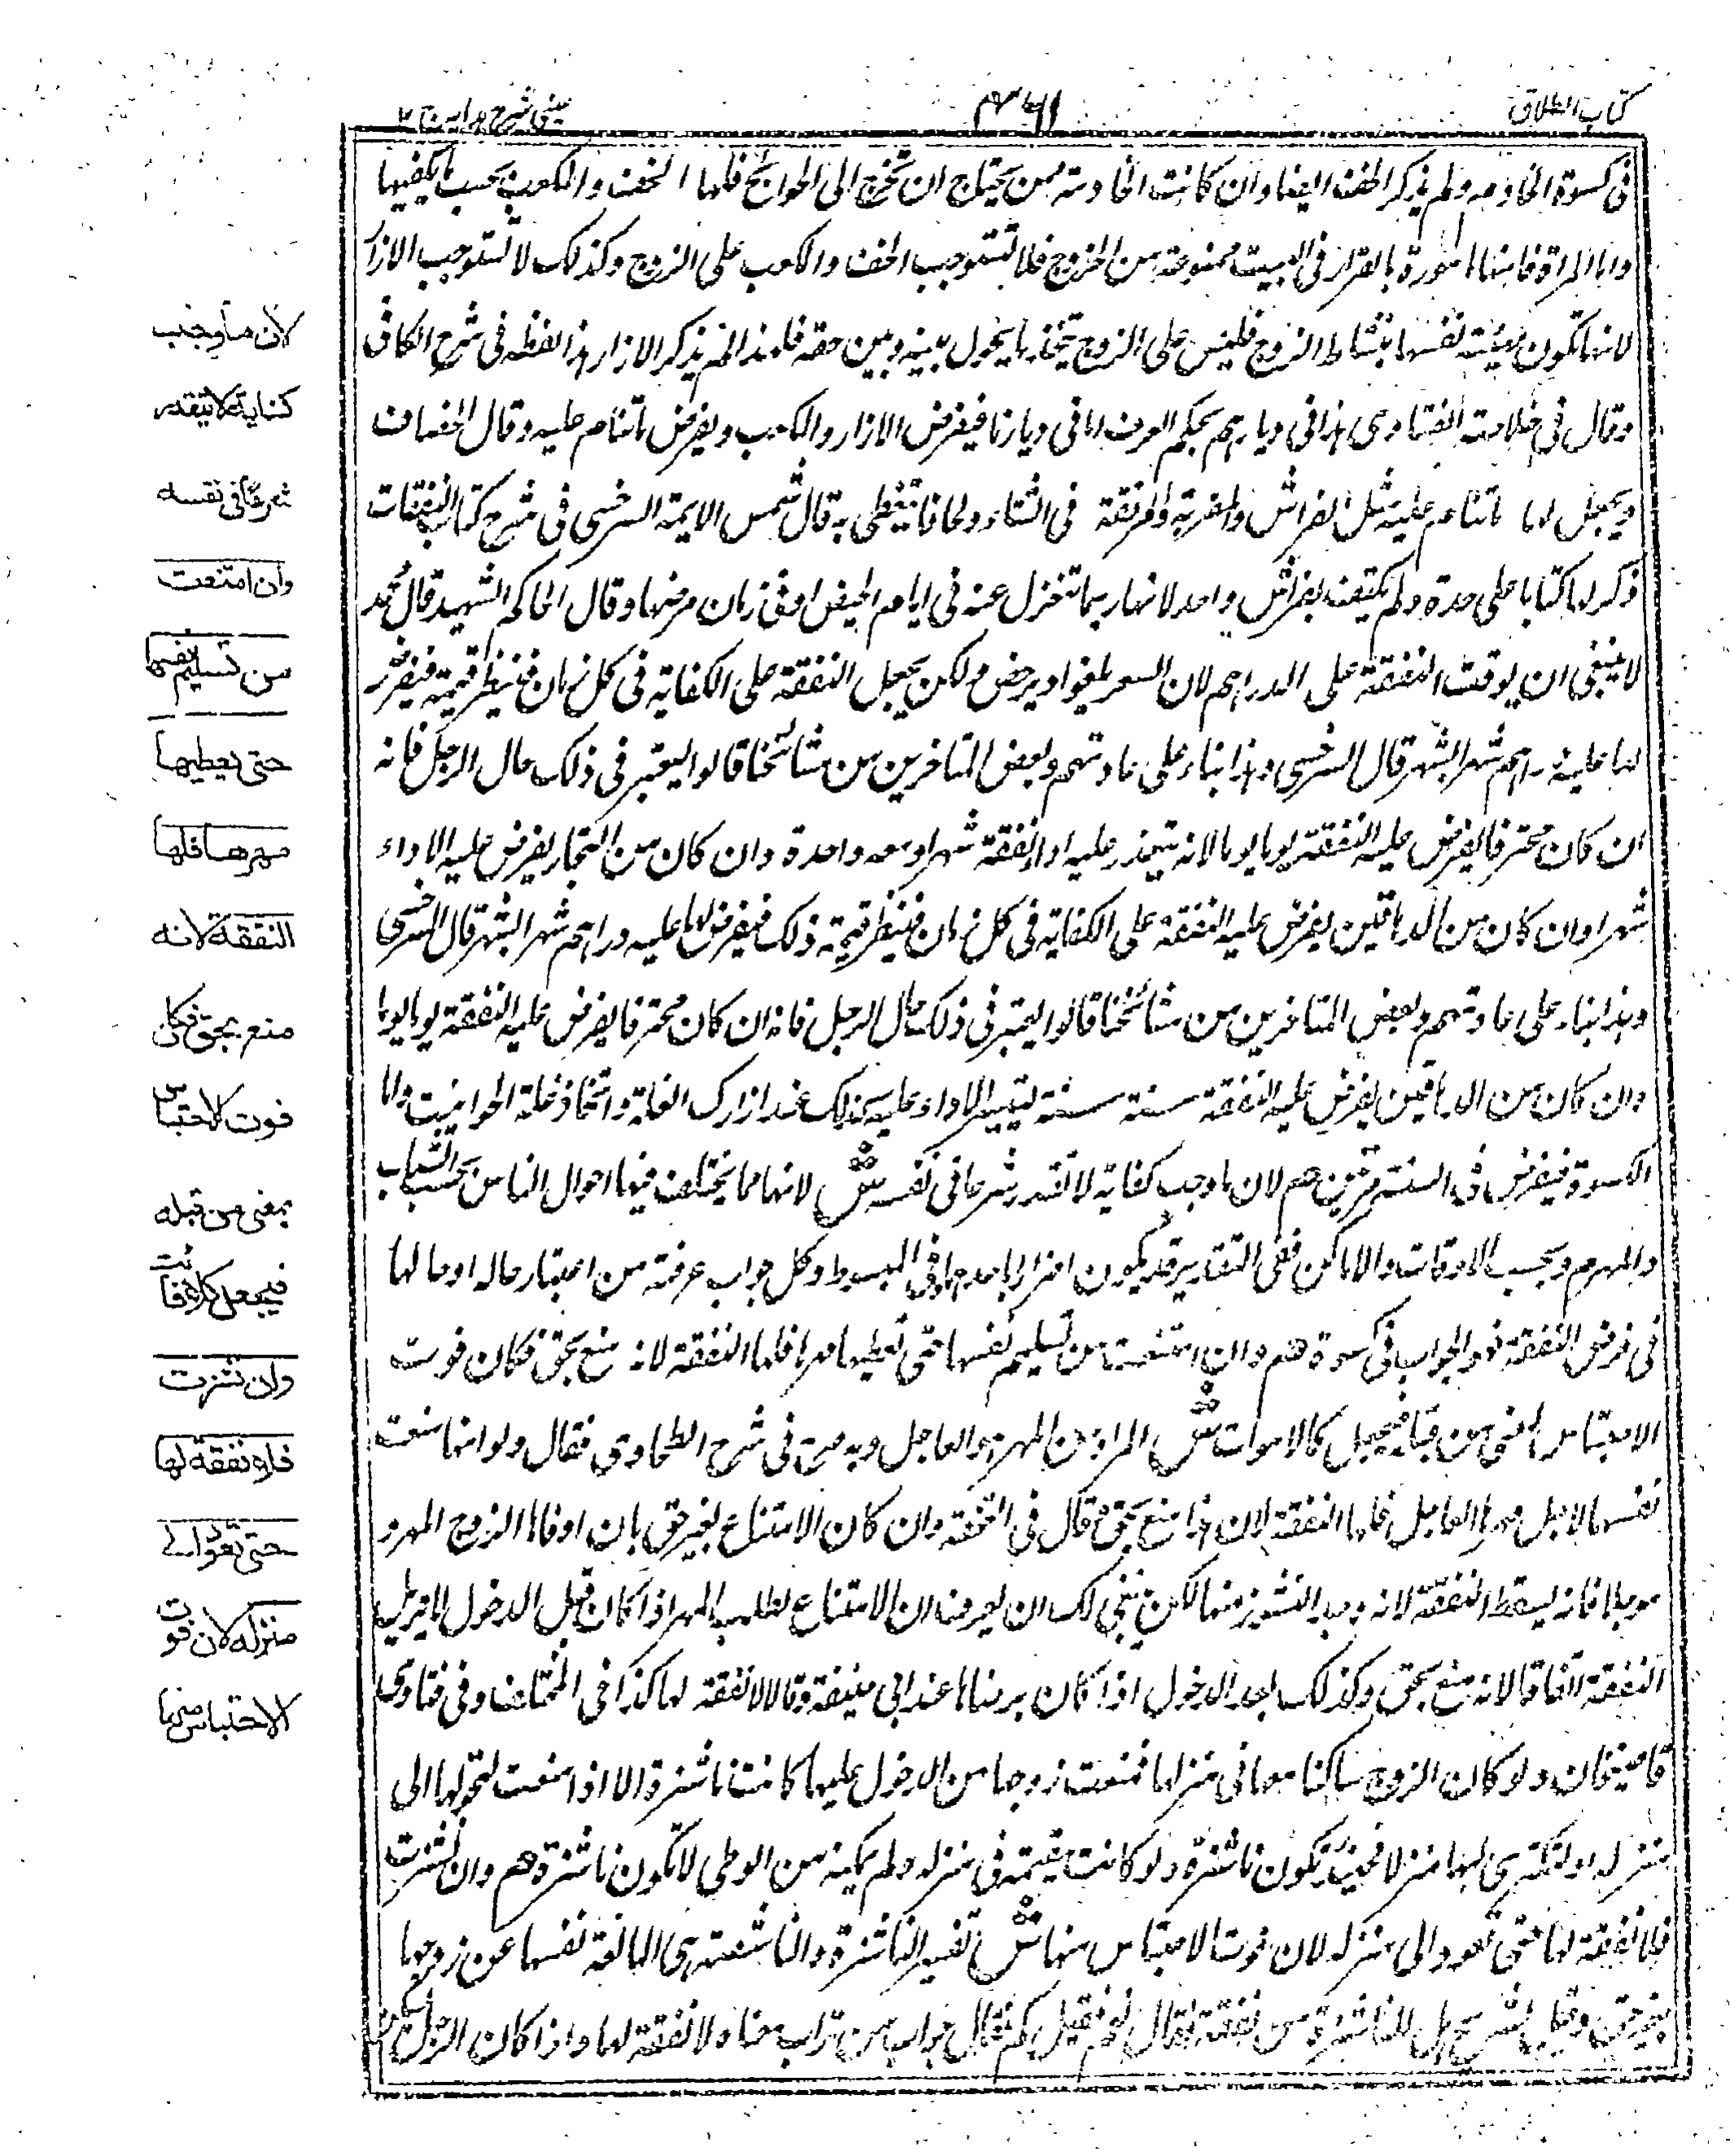 كتاب الطلاق
٤٦١
عینی شرح هدایه ج ٢
فى كسوة الخادمه ولم يذكر الخف ايضا وان كانت الخادمة ممن يحتاج ان تخرج الى الحوائج فلها الخف والمكعب بحسب ما يكفيها
واما المراة فانها مامورة بالقرار فى البيت ممنوعة من الخروج فلا تستوجب الخف والمكعب على الزوج وكذلك لا تستوجب الازار
لانها تكون مهيئة نفسها بنشاط الزوج فليس على الزوج تخاذ ما يحول بينه وبين حقه فلهذا لم يذكر الازار هذا لفظه فى شرح الكافى
وقال فى خلاصة الفتاوى هذا فى ديارهم بحكم العرف اما فى ديارنا فيفرض الازار والمكعب ويفرض ما تنام عليه وقال الخصاف
ويجعل لها ما تنام عليه مثل الفراش والمضربة والمرفقة فى الشتاء ولحافا تتغطى به قال شمس الايمة السرخسى فى شرح كتاب النفقات
ذكر لها كتابا على حدة ولم يكتف بفراش واحد لانها ربما تعتزل عنه فى ايام الحيض او فى زمان مرضها وقال الحاكم الشهيد قال محمد
لا ينبغى ان يوقت النفقة على الدراهم لان السعر يغلو او يرخص ولكن يجعل النفقة على الكفاية فى كل زمان فينظر قيمته فيفرض
لها عليه دراهم شهرا بشهر قال السرخسى وهذا بناء على عادتهم وبعض المتاخرين من مشائخنا قالوا يعتبر فى ذلك حال الرجل فانه
ان كان محترفا يفرض عليه النفقة يوما يوما لانه يتعذر عليه اداء نفقة شهر دفعة واحدة وان كان من التجار يفرض عليه الاداء
شهرا وان كان من الدهاقين يفرض عليه النفقة على الكفاية فى كل زمان فينظر قيمة ذلك فيفرض لها عليه دراهم شهرا بشهر قال السرخسى
وهذا بناء على عادتهم وبعض المتاخرين من مشائخنا قالوا يعتبر فى ذلك حال الرجل فانه ان كان محترفا يفرض عليه النفقة يوما يوما
وان كان من الدهاقين يفرض عليه النفقة سنة سنة لتيسير الاداء عليه كذلك عند ادراك الغلة واتخاذ غلة الحوانيت واما
الكسوة فيفرض فى السنة مرتين هم لان ما وجب كفاية لا تتقدر شرعا فى نفسه ش لانها مما يختلف فيها احوال الناس بحسب الشباب
والهرم وبحسب الاوقات والاماكن ففى التقدير قد يكون اضرارا باحدهما وفى المبسوط وكل جواب عرفته من اعتبار حاله او حالها
فى فرض النفقة فهو الجواب فى كسوة هم وان امتنعت من تسليم نفسها حتى يعطيها مهرها فلها النفقة لانه منع بحق فكان فوت
الاحتباس لمعنى من قبله فيجعل كالاموات ش المراد من المهر هو العاجل وبه صرح فى شرح الطحاوى فقال ولو انها منعت
نفسها لاجل مهرها العاجل فلها النفقة لان هذا منع بحق وقال فى التحفة وان كان الامتناع بغير حق بان اوفاها الزوج المهر و
موجلا فانه يسقط النفقة لانه وجد النشوز منها لكن ينبغى لك ان يعرف ان الامتناع لطلب المهر اذا كان قبل الدخول لا يزيل
النفقة اتفاقا لانه منع بحق وكذلك بعد الدخول اذا كان برضاها عند ابى حنيفة وقالا لا نفقة لها كذا فى المختلف وفى فتاوى
قاضيخان ولو كان الزوج ساكنا معها فى منزلها فمنعت زوجها من الدخول عليها كانت ناشزة الا اذا منعت لتحولها الى
منزله او لتكترى لها منزلا فحينئذ تكون ناشزة ولو كانت مقيمة فى منزله ولم يمكنه من الوطى لا تكون ناشزة هم وان نشزت
فلا نفقة لها حتى تعود الى منزله لان فوت الاحتباس منها ش تفسير الناشزة والناشصة هى المانعة نفسها عن زوجها
بغير حق وقيل لشريح هل للناشزة من نفقة فقال نعم فقيل كم فقال جراب من تراب معناه لا نفقة لها واذا كان الرجل
لان ما وجب
كفاية لا تتقدر
شرعا فى نفسه
وان امتنعت
من تسليم نفسها
حتى يعطيها
مهرها فلها
النفقة لانه
منع بحق فكان
فوت الاحتباس
بمعنى من قبله
فيجعل كلا فائت
وان نشزت
فلا نفقة لها
حتى تعود الى
منزله لان فوت
الاحتباس منها